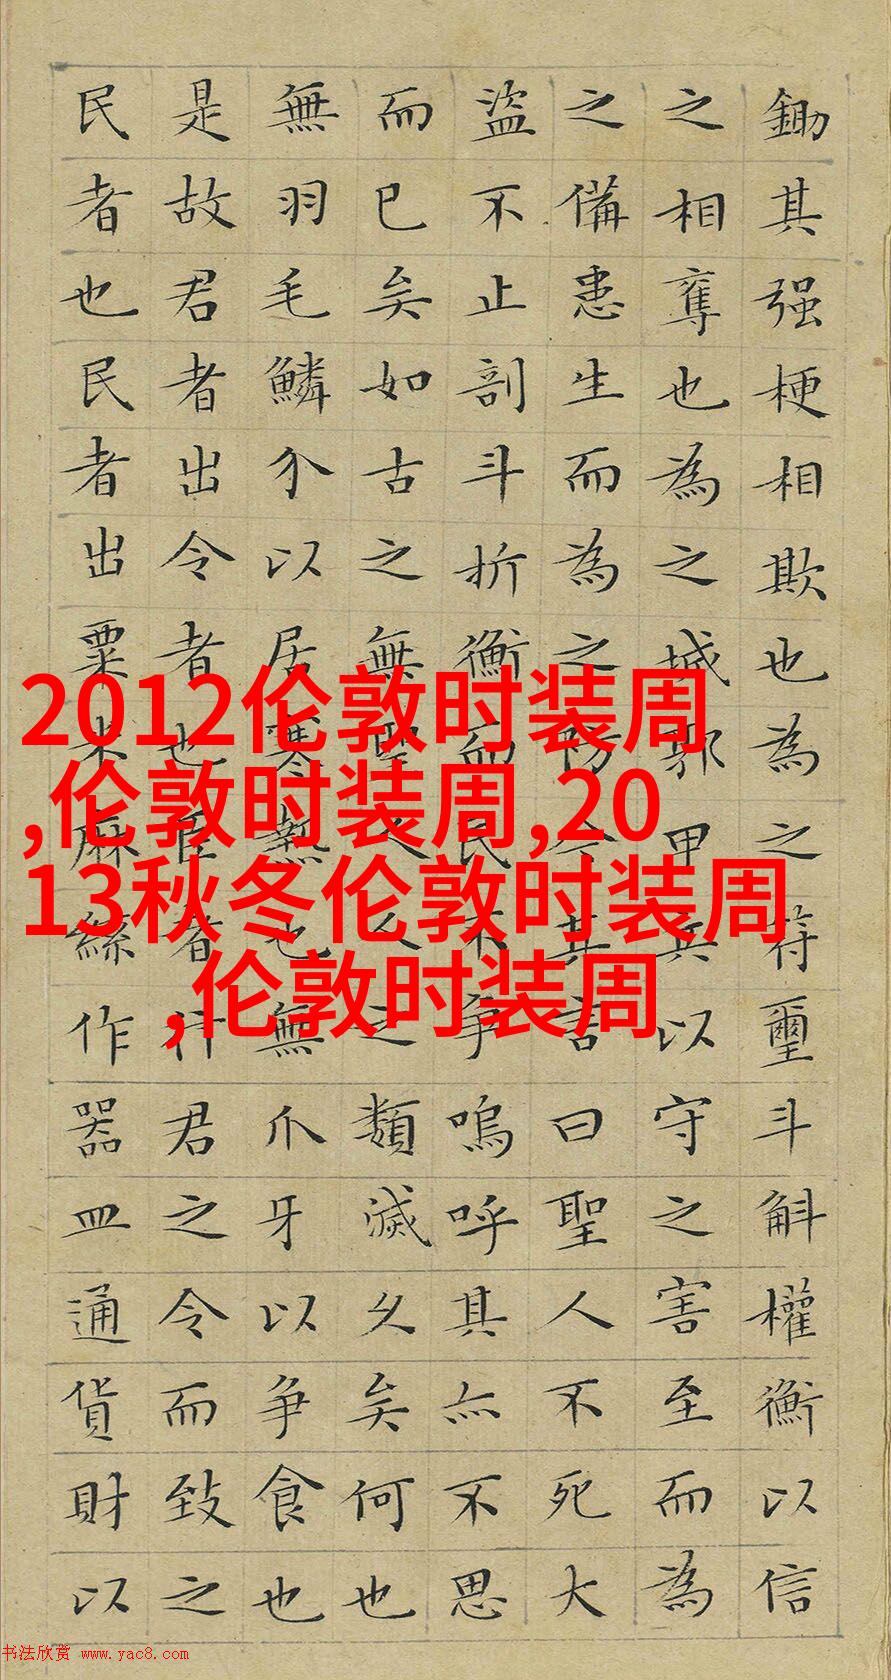 鋤其强梗相欺也為之符璽斗斛權衡以信
之相奪也為之城郭甲兵以守之害至而為
之備患生而為之防今其言曰聖人不死大
盜不止剖斗折衡而民不争嗚呼其亦不思
而已矣如古之無聖人人之類滅久矣何也
無羽毛鱗介以居寒熱也無爪牙以争食也
是故君者出令者也臣者行君之令而致之
民者也民者出粟米麻絲作器皿通貨財以
2012伦敦时装周
,伦敦时装周,20
13秋冬伦敦时装周
,伦敦时装周
书法欣赏 www.yac8.com